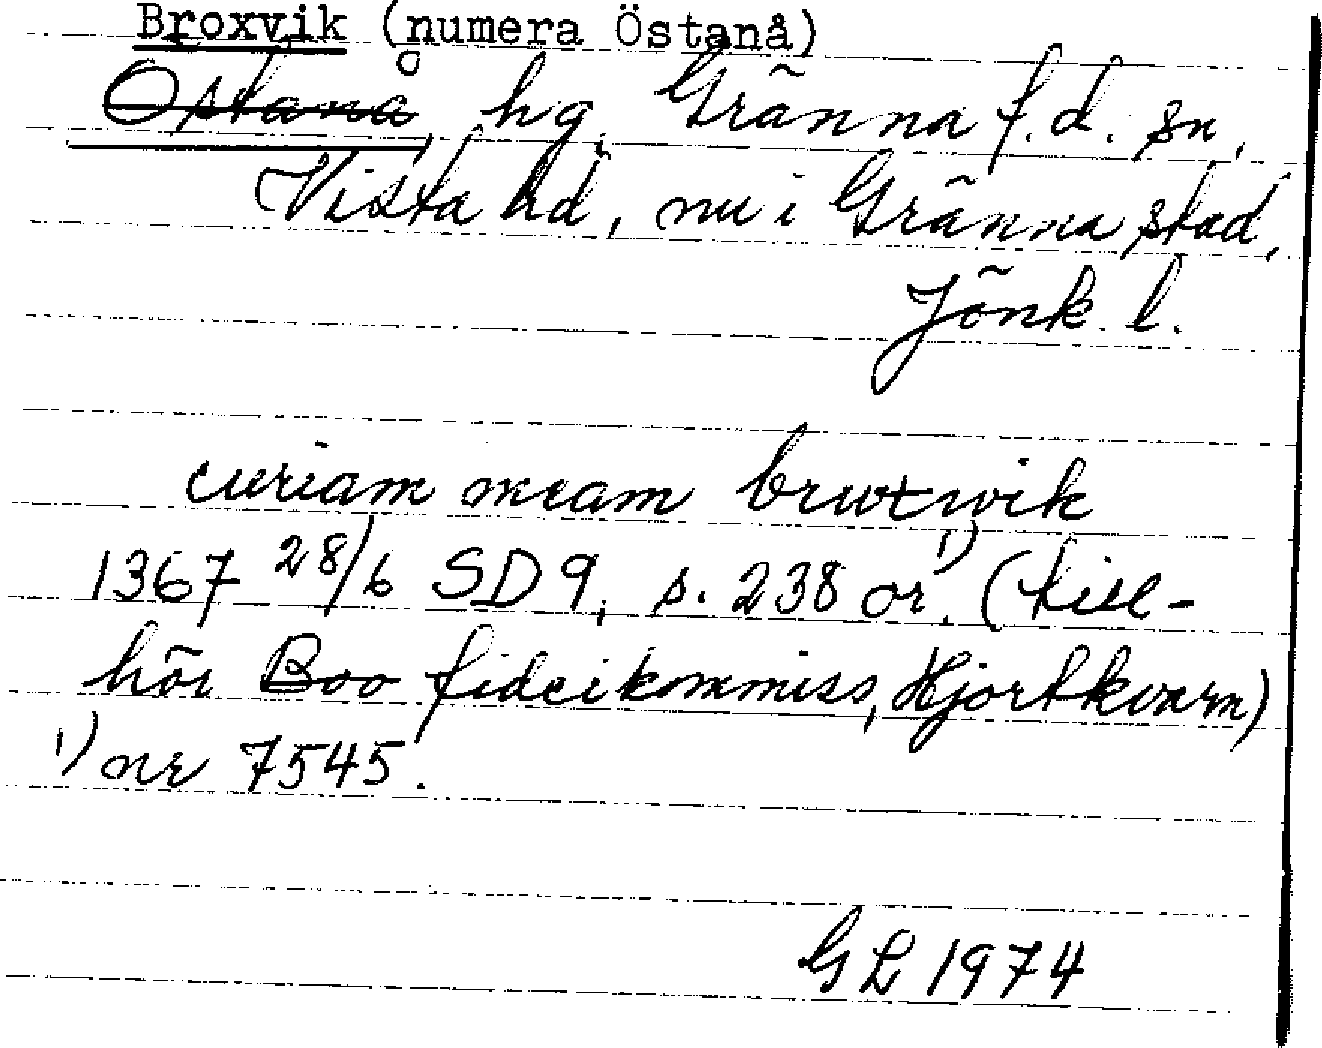 Broxvik (numera Östanå)
Östanå, hg, Gränna f.d. sn,
Vista hd, nu i Gränna stad,
Jönk. l.
curiam meam bruxwik
1367 28/6 SD 9, s. 238 or.1) (till-
hör Boo fideikommiss, Hjortkvarn)
1) nr 7545.
GL 1974